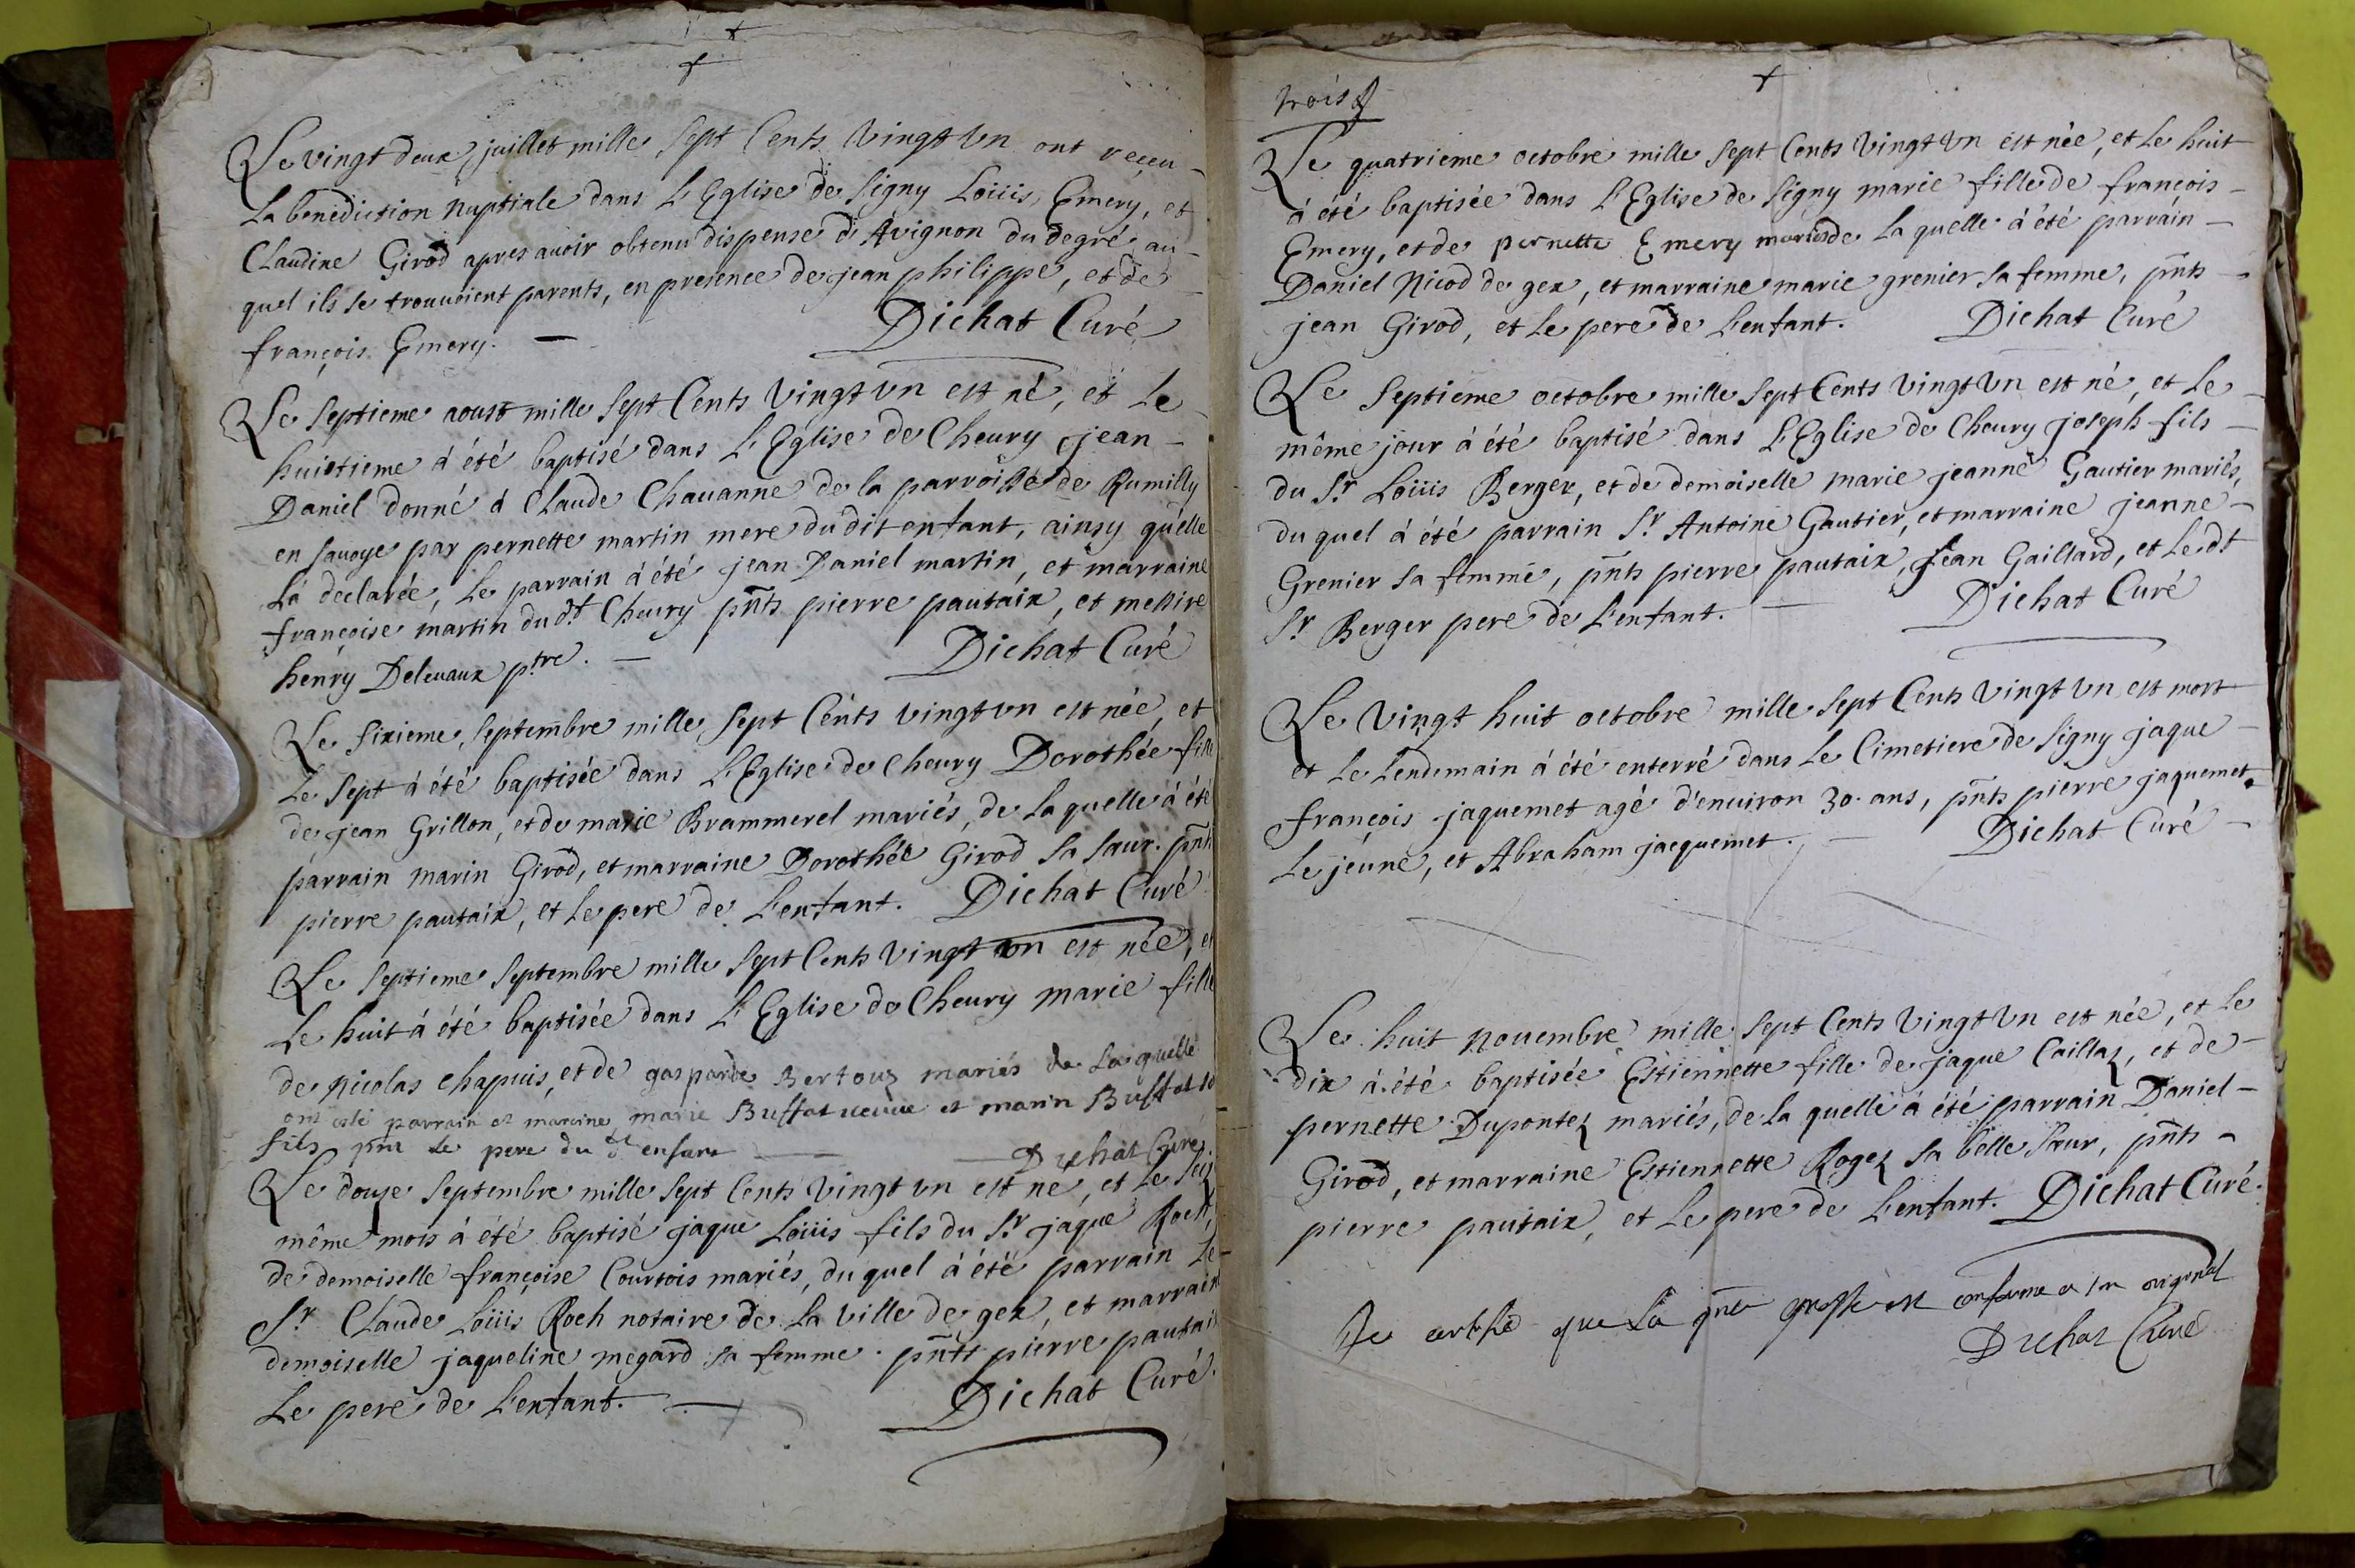 Le vingt deux juillet mille sept Cents vingt vn ont reçeu
la benediction nuptiale dans L'Eglise de Signy Loüis Emery, et
Claudine Girod apres auoir obtenu dispense d'Avignon du degré au
quel ils se trouuoient parents, en presence de jean philippe, et de
françois Emery. Dichat Curé
Le septieme aoust mille sept Cents vingt vn est né, et le
huictieme à été baptisé dans L'Eglise de Cheury jean
Daniel donné à Claude Chauanne de la parroisse de Rumilly
en sauoye par pernette martin mere du dit enfant, ainsy qu'elle
la declarée, le parrain à été jean Daniel martin, et marraine
françoise martin du dt Cheury pnts pierre pautaix, et messire
henry Deleuaux ptre. Dichat Curé
Le sixieme septembre mille sept Cents vingt vn est née, et
Le sept à été baptisée dans L'Eglise de Cheury Dorothée fille
de jean Grillon, et de marie Brammerel mariés, de la quelle à été
parrain marin Girod, et marraine Dorothée Girod sa sœur. pnts
pierre pautaix, et le pere de L'enfant. Dichat Curé
Le septieme septembre mille sept Cents vingt vn est née, et
Le huit à été baptisée dans L'Eglise de Cheury marie fille
de nicolas chapuis, et de gasparde Bertouz mariés de la quelle
ont esté parrain et marrine marie Buffat veuue et marin Buffat so
fils pnt le pere du dt enfant Dichat Curé
Le douze septembre mille sept Cents vingt vn est né, et le seiz
même mois à été baptisé jaque Loüis fils du Sr jaque Roch,
de demoiselle françoise Courtois mariés, du quel à été parrain le
Sr Claude Loüis Roch notaire de la ville de gex, et marraine
demoiselle jaqueline megard sa femme. pnts pierre pautaix
Le pere de L'enfant. Dichat Curé.
trois
Le quatrieme octobre mille sept Cents vingt vn est née, et le huit
à été baptisée dans L'Eglise de Signy marie fille de françois
Emery, et de pernette Emery mariés de la quelle à été parrain
Daniel Nicod de gex, et marraine marie grenier sa femme, pnts
jean Girod, et le pere de L'enfant. Dichat Curé
Le septieme octobre mille sept Cents vingt vn est né, et le
même jour à été baptisé dans L'Eglise de Cheury joseph fils
du Sr Loüis Berger, et de demoiselle marie jeanne Gautier mariés,
du quel à été parrain Sr Antoine Gautier, et marraine jeanne
Grenier sa femme, pnts pierre pautaix, Jean Gaillard, et le dt
Sr Berger pere de L'enfant. Dichat Curé
Le vingt huit octobre mille sept Cents vingt vn est mort
et le lendemain à été enterré dans le Cimetiere de Signy jaque
françois jaquemet agé d'enuiron 30. ans, pnts pierre jaquemet
Le jeune, et Abraham jacquemet. Dichat Curé
Le huit nouembre mille sept Cents vingt vn est née, et le
dix à été baptisée Estiennette fille de jaque Caillaz, et de
pernette Dupontez mariés, de la quelle à été parrain Daniel
Girod, et marraine Estiennette Rogez sa belle sœur, pnts
pierre pautaix, et le pere de L'enfant. Dichat Curé.
Je certifie que la pnte grosse est conforme a son original
Dichat Curé